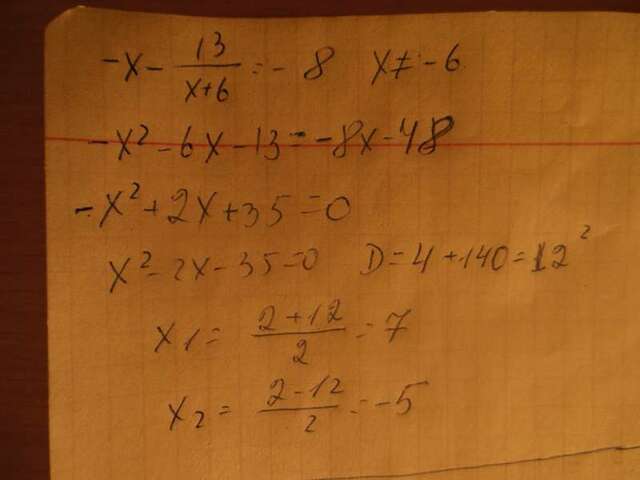 -x - 13/(x+6) = -8   x ≠ -6
-x² - 6x - 13 = -8x - 48
-x² + 2x + 35 = 0
x² - 2x - 35 = 0   D = 4 + 140 = 12²
x₁ = (2+12)/2 = 7
x₂ = (2-12)/2 = -5